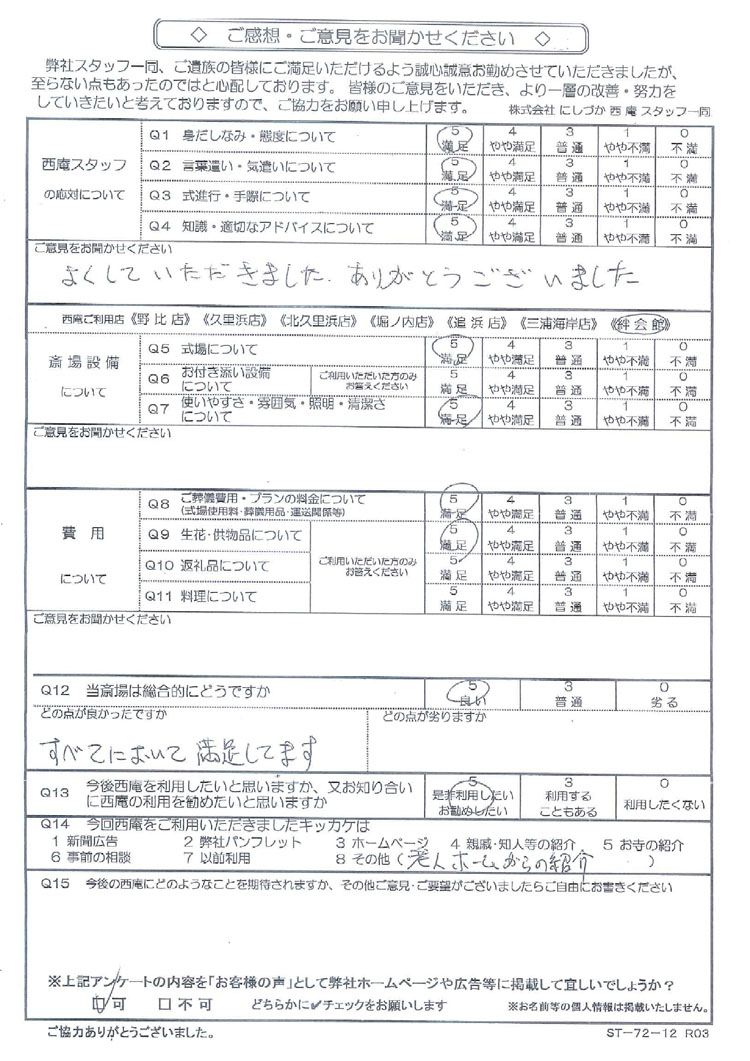 ◇ ご感想・ご意見をお聞かせください ◇
弊社スタッフ一同、ご遺族の皆様にご満足いただけるよう誠心誠意お勤めさせていただきましたが、
至らない点もあったのではと心配しております。皆様のご意見をいただき、より一層の改善・努力を
していきたいと考えておりますので、ご協力をお願い申し上げます。 株式会社 にしづか 西庵 スタッフ一同
西庵スタッフ
の応対について
Q1 身だしなみ・態度について 5 満足 4 やや満足 3 普通 1 やや不満 0 不満
Q2 言葉遣い・気遣いについて 5 満足 4 やや満足 3 普通 1 やや不満 0 不満
Q3 式進行・手際について 5 満足 4 やや満足 3 普通 1 やや不満 0 不満
Q4 知識・適切なアドバイスについて 5 満足 4 やや満足 3 普通 1 やや不満 0 不満
ご意見をお聞かせください
よくしていただきました. ありがとうございました
西庵ご利用店 《野比店》 《久里浜店》 《北久里浜店》 《堀ノ内店》 《追浜店》 《三浦海岸店》 《絆会館》
斎場設備
について
Q5 式場について 5 満足 4 やや満足 3 普通 1 やや不満 0 不満
Q6 お付き添い設備について ご利用いただいた方のみお答えください 5 満足 4 やや満足 3 普通 1 やや不満 0 不満
Q7 使いやすさ・雰囲気・照明・清潔さについて 5 満足 4 やや満足 3 普通 1 やや不満 0 不満
ご意見をお聞かせください
費用
について
Q8 ご葬儀費用・プランの料金について (式場使用料・葬儀用品・運送関係等) 5 満足 4 やや満足 3 普通 1 やや不満 0 不満
Q9 生花・供物品について 5 満足 4 やや満足 3 普通 1 やや不満 0 不満
Q10 返礼品について ご利用いただいた方のみお答えください 5 満足 4 やや満足 3 普通 1 やや不満 0 不満
Q11 料理について 5 満足 4 やや満足 3 普通 1 やや不満 0 不満
ご意見をお聞かせください
Q12 当斎場は総合的にどうですか 5 良い 3 普通 0 劣る
どの点が良かったですか どの点が劣りますか
すべてにおいて満足してます
Q13 今後西庵を利用したいと思いますか、又お知り合いに西庵の利用を勧めたいと思いますか 5 是非利用したいお勧めしたい 3 利用することもある 0 利用したくない
Q14 今回西庵をご利用いただきましたキッカケは
1 新聞広告 2 弊社パンフレット 3 ホームページ 4 親戚・知人等の紹介 5 お寺の紹介
6 事前の相談 7 以前利用 8 その他 (老人ホームからの紹介)
Q15 今後の西庵にどのようなことを期待されますか、その他ご意見・ご要望がございましたらご自由にお書きください
※上記アンケートの内容を「お客様の声」として弊社ホームページや広告等に掲載して宜しいでしょうか?
☑可 □不可 どちらかに✔チェックをお願いします ※お名前等の個人情報は掲載いたしません。
ご協力ありがとうございました。 ST-72-12 R03